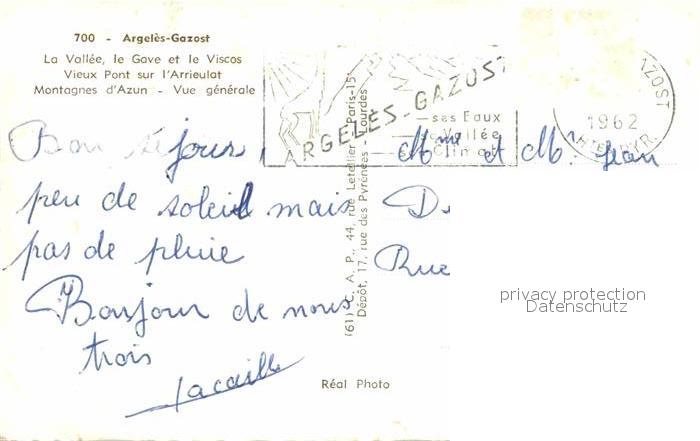 700 - Argelès-Gazost
La Vallée, le Gave et le Viscos
Vieux Pont sur l'Arrieulat
Montagnes d'Azun - Vue générale
Bon séjour,
peu de soleil mais
pas de pluie
Bonjour de nous
trois
Lacaille
(61) C. A. P., 44, rue Letellier - Paris-15e
Dépôt, 17, rue des Pyrénées - Lourdes
Réal Photo
ARGELÈS-GAZOST
ses Eaux
sa Vallée
son Climat
GAZOST
1962
HTES PYR.
Mme et Mr Jean
D.
Rue
privacy protection
Datenschutz